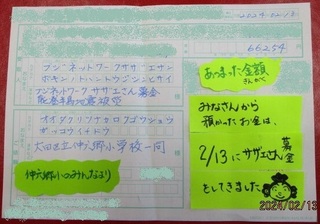 2024-02.13
66254
あつまった金額
きんがく
フジネットワークサザエサン
ボキンノトハントウジシンヒサイ
フジネットワーク サザエさん募金
能登半島地震被災
みなさんから
預かったお金は、
2/13にサザエさん募金
をしてきました
オオタクリツナカロクゴウショウ
ガッコウイチドウ
大田区立仲六郷小学校一同
仲六郷小のみんなより
2024/02/13